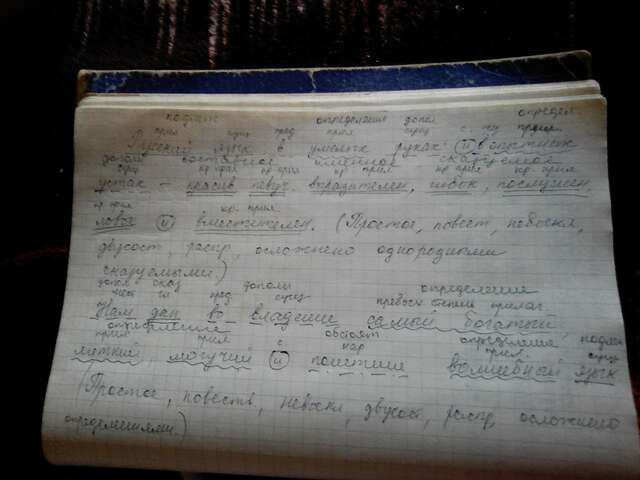 подлеж определение допол определ.
прил сущ пред прил сущ с. пр прил
Русский язык в умелых руках и опытных
допол составное именное сказуемое
сущ кр прил кр прил кр прил кр прил кр. прил
устах – красив певуч, выразителен, гибок, послушен,
кр прил кр. прил
ловок и вместителен. (Простое, повест, невоскл,
двусост, распр, осложнено однородными
сказуемыми)
допол сказ дополн определение
мест гл пред. сущ превосх степень прилаг.
Нам дан во владение самый богатый,
определение обстоят определение подлеж
прил прил с нар прил. сущ
меткий, могучий и поистине волшебный язык
(Простое, повеств, невоскл, двусост, распр, осложнено
определениями.)